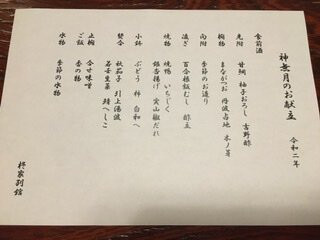 神無月のお献立
令和二年
食前酒
先附 甘鯛 柚子おろし 吉野酢
椀物 まながつお 丹波占地 木ノ芽
向附 季節のお造り
凌ぎ 百合根飯むし 酢立
焼物 焼鴨 いちじく
銀杏揚げ 実山椒だれ
小鉢 ぶどう 柿 白和へ
焚合 秋茄子 引上湯波
若壬生菜 鰊へしこ
止椀 合せ味噌
ご飯 香の物
水物 季節の水物
柊家別館